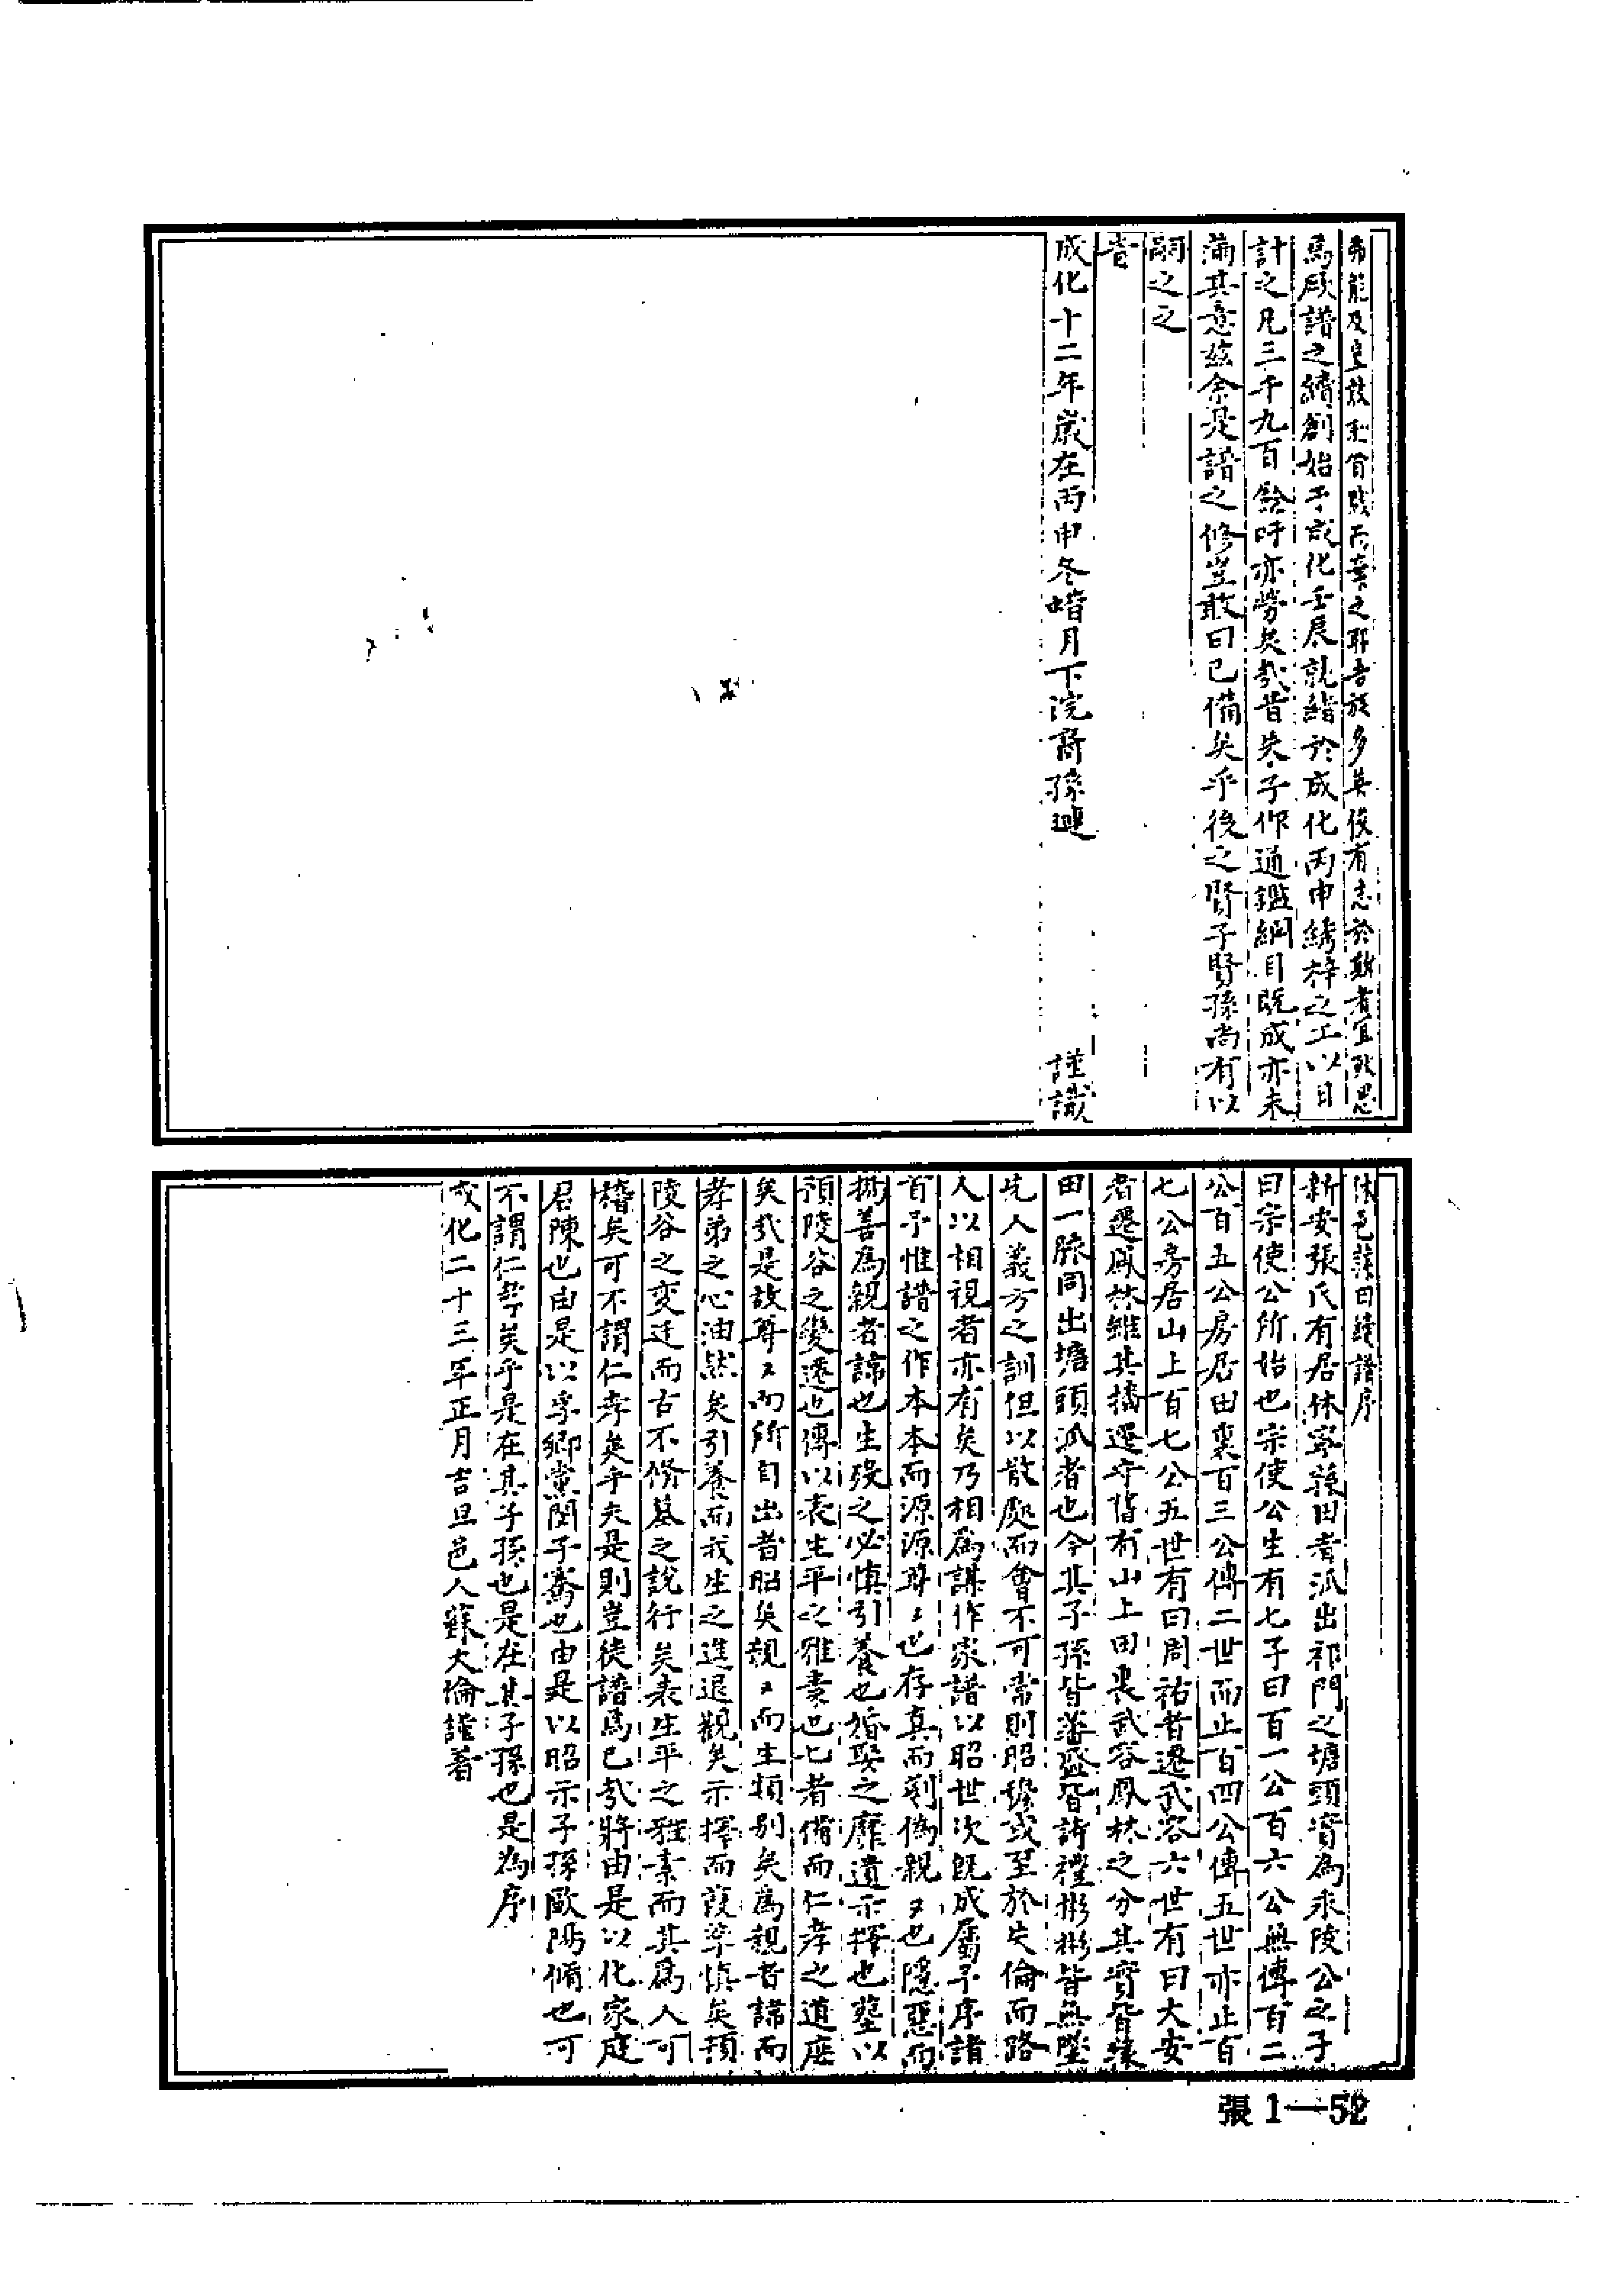 弗能及豈敢
焉厥譜之續創始于成化壬辰就緒於成化丙申綉梓之工以日
計之凡三千九百餘吁亦勞矣哉昔朱子作通鑑綱目既成亦未
滿其意茲余是譜之修豈敢曰已備矣乎後之賢子賢孫尚有以
嗣之之
旹
成化十二年歲在丙申冬蜡月下浣裔孫璉　謹識
休邑蓀田續譜序
新安張氏有居休寧蓀田者派出祁門之塘頭實為永陵公之子
曰宗使公所始也宗使公生有七子曰百一公百六公無傳百二
公百五公房居田裏百三公傳二世而止百四公傳五世亦止百
七公房居山上百七公五世有曰周祐者遷武容六世有曰大安
者遷鳳林雖其播遷守舊有山上田裏武容鳳林之分其實皆蓀
田一脉同出塘頭派者也今其子孫皆蕃盛皆詩禮彬彬皆無墜
先人義方之訓但以散處而會不可常則昭穆或至於失倫而路
人以相視者亦有矣乃相為謀作家譜以昭世次既成屬予序諸
首予惟譜之作本本而源源尊〻也存真而剗偽親〻也隱惡而
揚善為親者諱也生歿之必慎引養也婚娶之靡遺示擇也塋以
預陵谷之變遷也傳以表生平之雅素也七者備而仁孝之道在
矣哉是故尊〻而所自出者昭矣親〻而生類别矣為親者諱而
孝弟之心油然矣引養而我生之進退觀矣示擇而葭莩慎矣預
陵谷之変迁而古不修墓之說行矣表生平之雅素而其為人可
稽矣可不謂仁孝矣乎夫是則豈徒譜焉已哉將由是以化家庭
君陳也由是以孚鄉黨閔子騫也由是以昭示子孫歐陽脩也可
不謂仁孝矣乎是在其子孫也是在其子孫也是為序
成化二十三年正月吉旦邑人蘇大倫謹著
張1—52